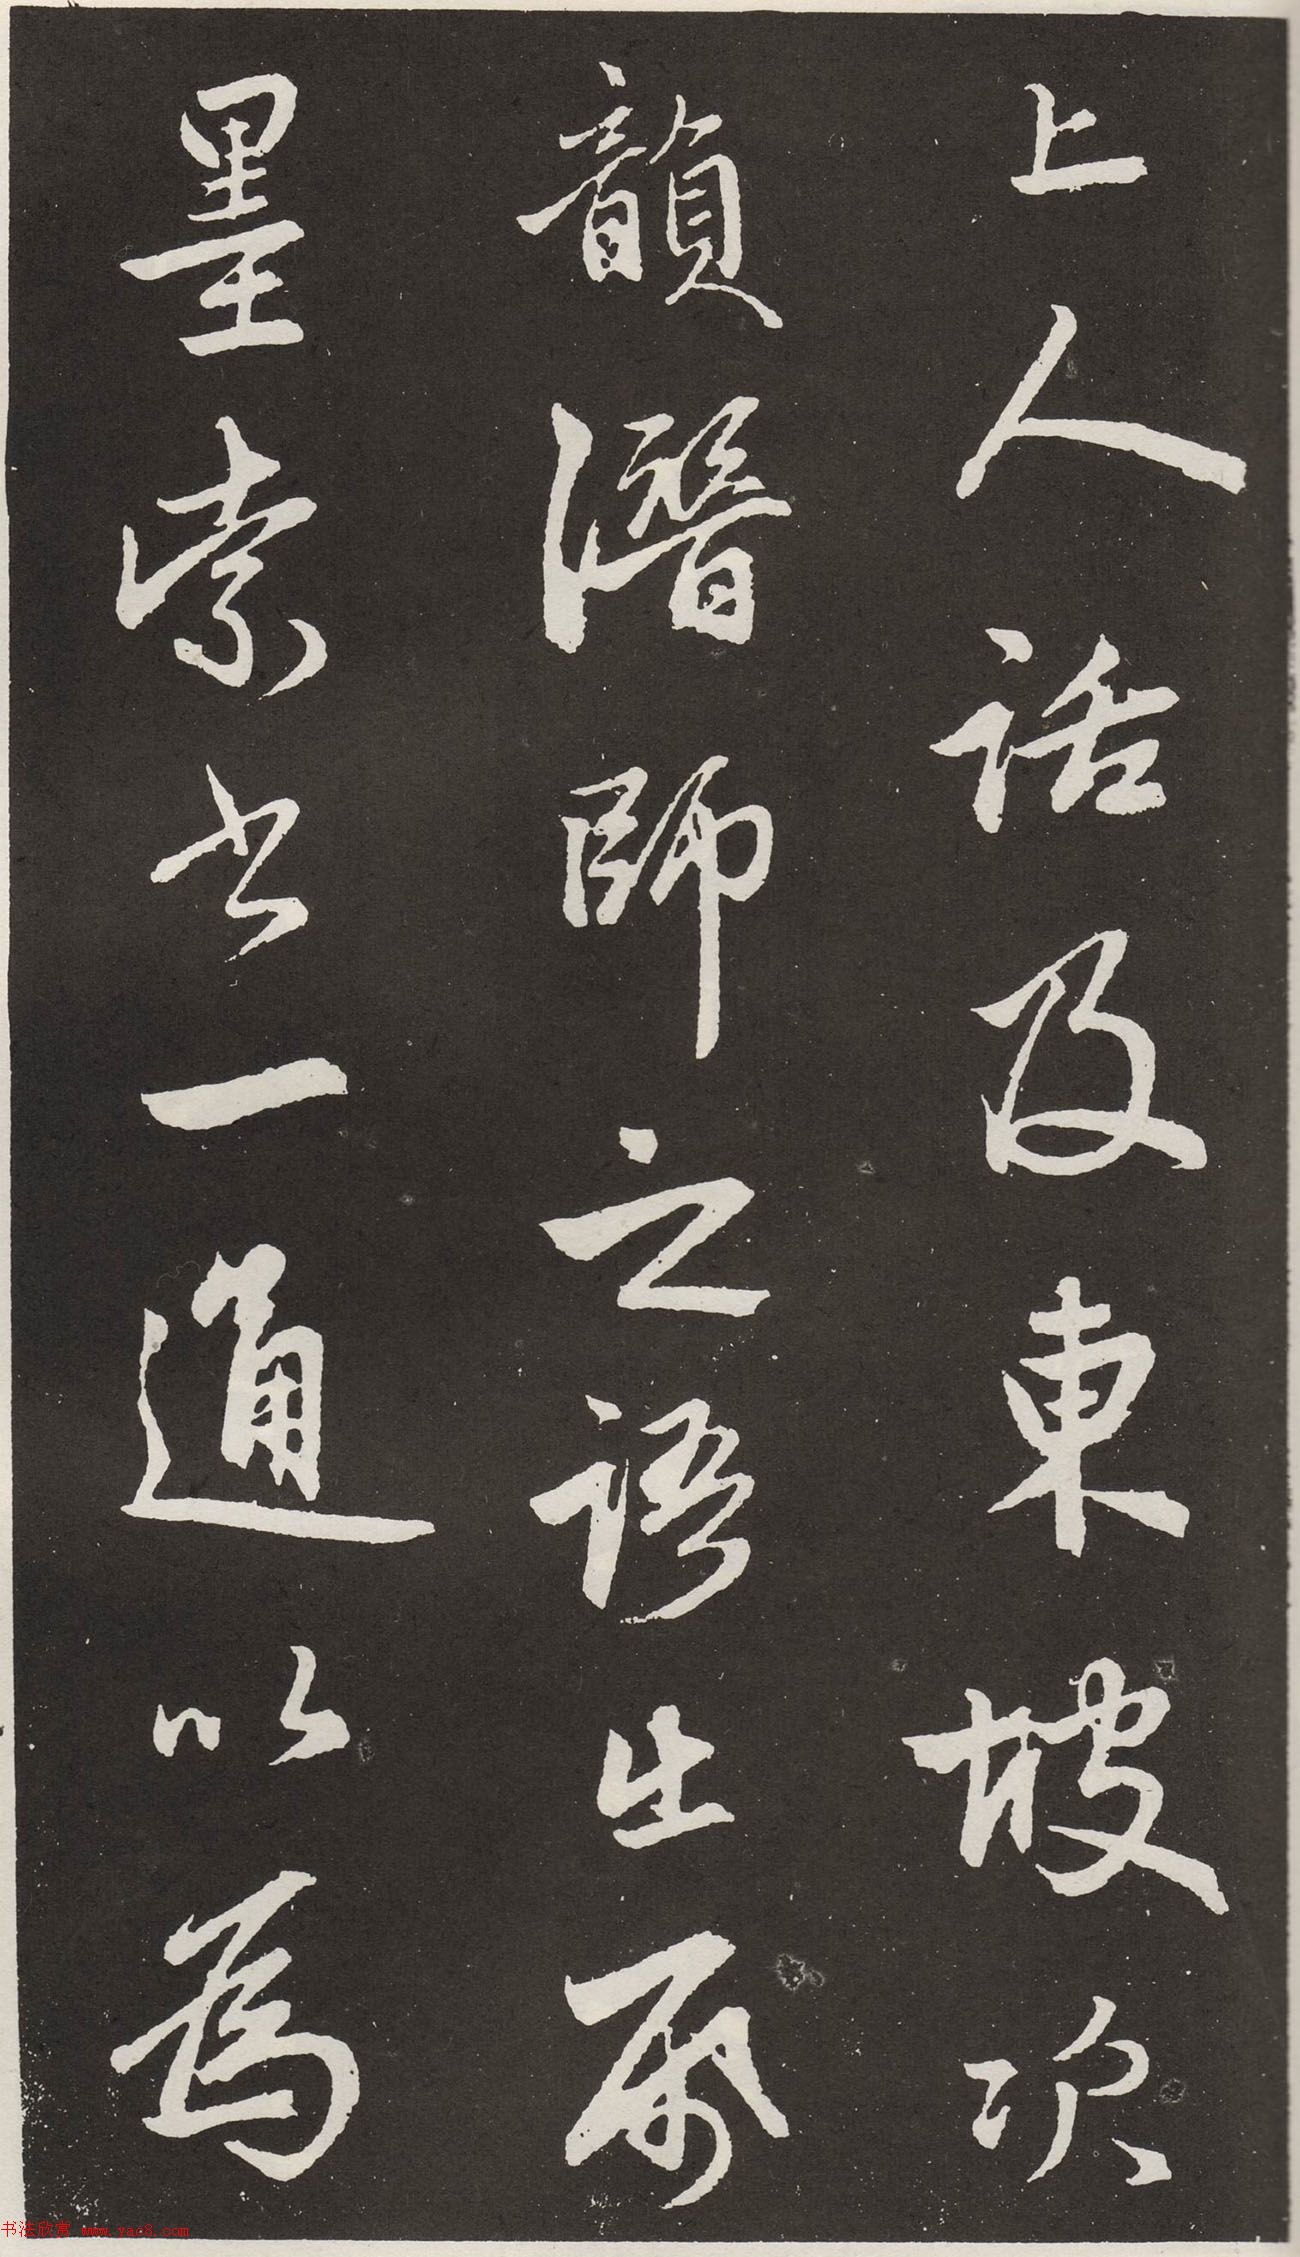 上人話及東坡次
韻潛師之語生
墨索書一通以為
书法欣赏 www.yac8.com